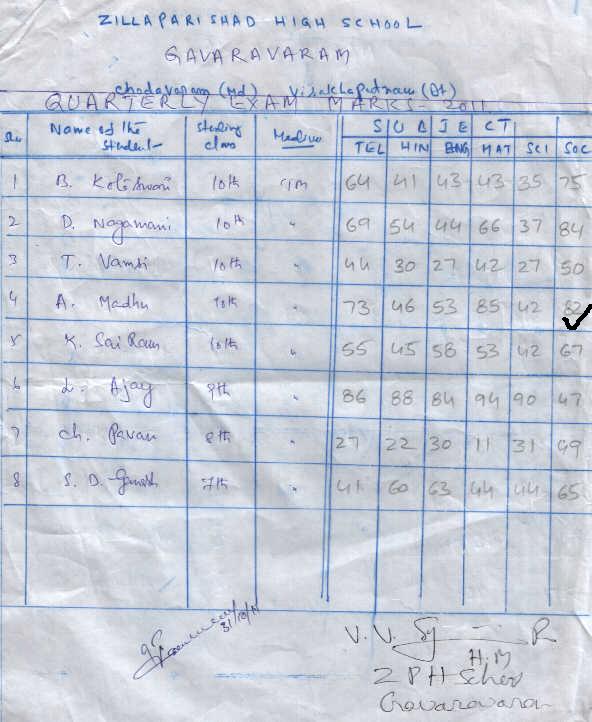 ZILLAPARISHAD HIGH SCHOOL
GAVARAVARAM
Chodavaram (Md) Visakhapatnam (Dt)
QUARTERLY EXAM MARKS - 2011
Name of the Student Studing class Medium SUBJECT
TEL HIN ENG MAT SCI SOC
1 B. 10th 64 41 43 43 35 75
2 D. Nagamani 10th " 69 54 44 66 37 84
3 T. Vamsi 10th " 44 30 27 42 27 50
4 A. Madhu 10th " 73 46 53 85 42 82
5 K. Sai Ram 10th " 55 45 58 53 42 67
6 L. Ajay 9th " 86 88 84 94 90 47
7 Ch. Pavan 8th " 27 22 30 11 31 49
8 S. D. Ganesh 7th " 41 60 63 44 44 65
V. V. R
H.M
Z P H School
Gavaravaram